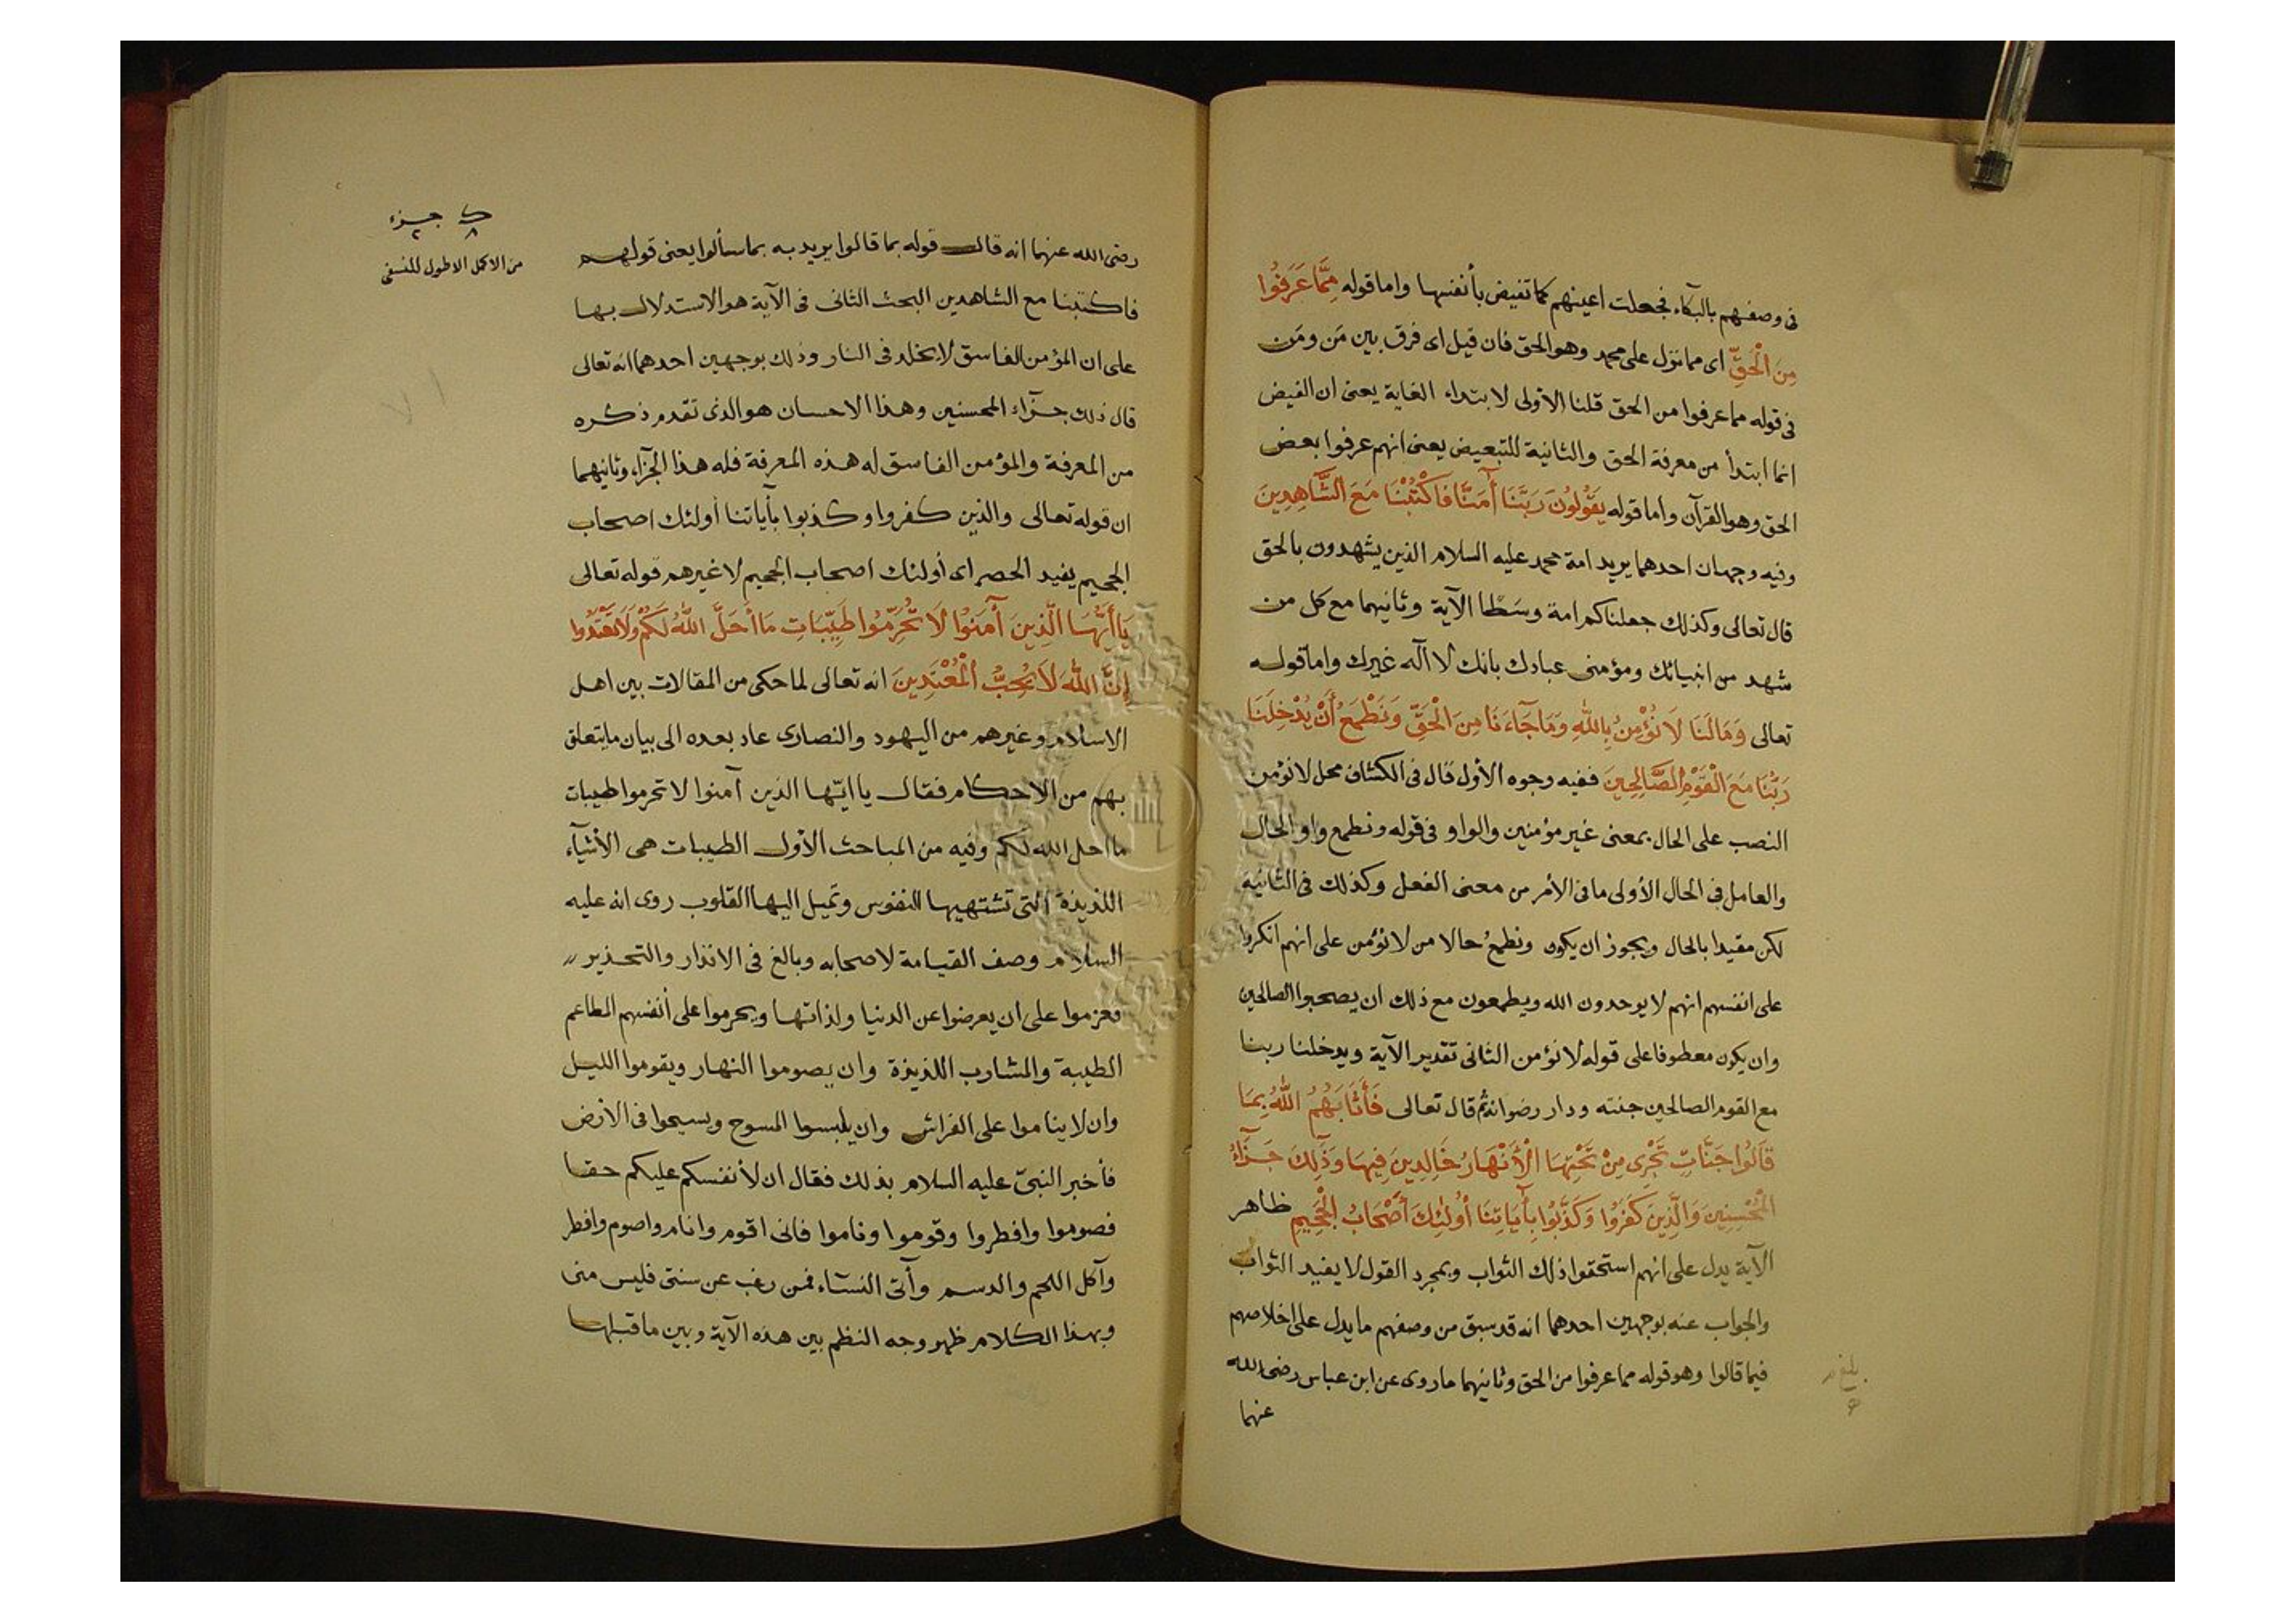 فى وصفهم بالبكآء فجعلت اعينهم كما تفيض بأنفسها واما قوله مِمَّا عَرَفُوا
مِنَ الْحَقِّ اى مما نزل على محمد وهو الحق فان قيل اى فرق بين مَن ومَن
فى قوله مما عرفوا من الحق قلنا الاولى لابتداء الغاية يعنى ان الفيض
انما ابتدأ من معرفة الحق والثانية للتبعيض يعنى انهم عرفوا بعض
الحق وهو القرآن واما قوله يَقُولُونَ رَبَّنَا أَمَنَّا فَاكْتُبْنَا مَعَ الشَّاهِدِينَ
وفيه وجهان احدهما يريد امة محمد عليه السلام الذين يشهدون بالحق
قال تعالى وكذلك جعلناكم امة وسَطًا الآية وثانيهما مع كل من
شهد من انبيائك ومؤمنى عبادك بانك لا اله غيرك واما قوله
تعالى وَمَا لَنَا لَا نُؤْمِنُ بِاللهِ وَمَا جَآءَنَا مِنَ الْحَقِّ وَنَطْمَعُ أَنْ يُدْخِلَنَا
رَبُّنَا مَعَ الْقَوْمِ الصَّالِحِينَ ففيه وجوه الأول قال فى الكشاف محل لا نؤمن
النصب على الحال بمعنى غير مؤمنين والواو فى قوله ونطمع واو الحال
والعامل فى الحال الأولى ما فى الأمر من معنى الفعل وكذلك فى الثانية
لكن مقيدا بالحال ويجوز ان يكون ونطمعُ حالا من لا نؤمن على انهم انكروا
على انفسهم انهم لا يوحدون الله ويطمعون مع ذلك ان يصحبوا الصالحين
وان يكون معطوفا على قوله لا نؤمن الثانى تقدير الآية ويدخلنا ربنا
مع القوم الصالحين جنته ودار رضوانه ثم قال تعالى فَأَثَابَهُمُ اللهُ بِمَا
قَالُوا جَنَّاتٍ تَجْرِى مِنْ تَحْتِهَا الْأَنْهَارُ خَالِدِينَ فِيهَا وَذَلِكَ جَزَآءُ
الْمُحْسِنِينَ وَالَّذِينَ كَفَرُوا وَكَذَّبُوا بِأَيَاتِنَا أُولَئِكَ أَصْحَابُ الْجَحِيمِ ظاهر
الآية يدل على انهم استحقوا ذلك الثواب وبمجرد القول لا يفيد الثواب
والجواب عنه بوجهين احدهما انه قد سبق من وصفهم ما يدل على اخلاصهم
فيما قالوا وهو قوله مما عرفوا من الحق وثانيهما ما روى عن ابن عباس رضى الله
عنهما
جزء
من الاكمل الاطول للنسفى
رضى الله عنهما انه قال قوله بما قالوا يريد به بما سألوا يعنى قولهم
فاكتبنا مع الشاهدين البحث الثانى فى الآية هو الاستدلال بها
على ان المؤمن الفاسق لا يخلد فى النار وذلك بوجهين احدهما انه تعالى
قال ذلك جزآء المحسنين وهذا الاحسان هو الذى تقدم ذكره
من المعرفة والمؤمن الفاسق له هذه المعرفة فله هذا الجزآء وثانيهما
ان قوله تعالى والذين كفروا وكذبوا بأياتنا أولئك اصحاب
الجحيم يفيد الحصر اى أولئك اصحاب الجحيم لا غيرهم قوله تعالى
يَا أَيُّهَا الَّذِينَ آمَنُوا لَا تُحَرِّمُوا طَيِّبَاتِ مَا أَحَلَّ اللهُ لَكُمْ وَلَا تَعْتَدُوا
إِنَّ اللهَ لَا يُحِبُّ الْمُعْتَدِينَ انه تعالى لما حكى من المقالات بين اهل
الاسلام وغيرهم من اليهود والنصارى عاد بعده الى بيان ما يتعلق
بهم من الاحكام فقال يا ايّها الذين آمنوا لا تحرموا طيبات
ما احل الله لكم وفيه من المباحث الأول الطيبات هى الأشيآء
اللذيذة التى تشتهيها النفوس وتميل اليها القلوب روى انه عليه
السلام وصف القيامة لاصحابه وبالغ فى الانذار والتحذير
فعزموا على ان يعرضوا عن الدنيا ولذاتها ويحرموا على أنفسهم المطاعم
الطيبة والمشارب اللذيذة وان يصوموا النهار ويقوموا الليل
وان لا يناموا على الفراش وان يلبسوا المسوح ويسيحوا فى الأرض
فأخبر النبىّ عليه السلام بذلك فقال ان لأنفسكم عليكم حقا
فصوموا وافطروا وقوموا وناموا فانى اقوم وانام واصوم وافطر
وآكل اللحم والدسم وأتى النسآء فمن رغب عن سنتى فليس منى
وبهذا الكلام ظهر وجه النظم بين هذه الآية وبين ما قبلها